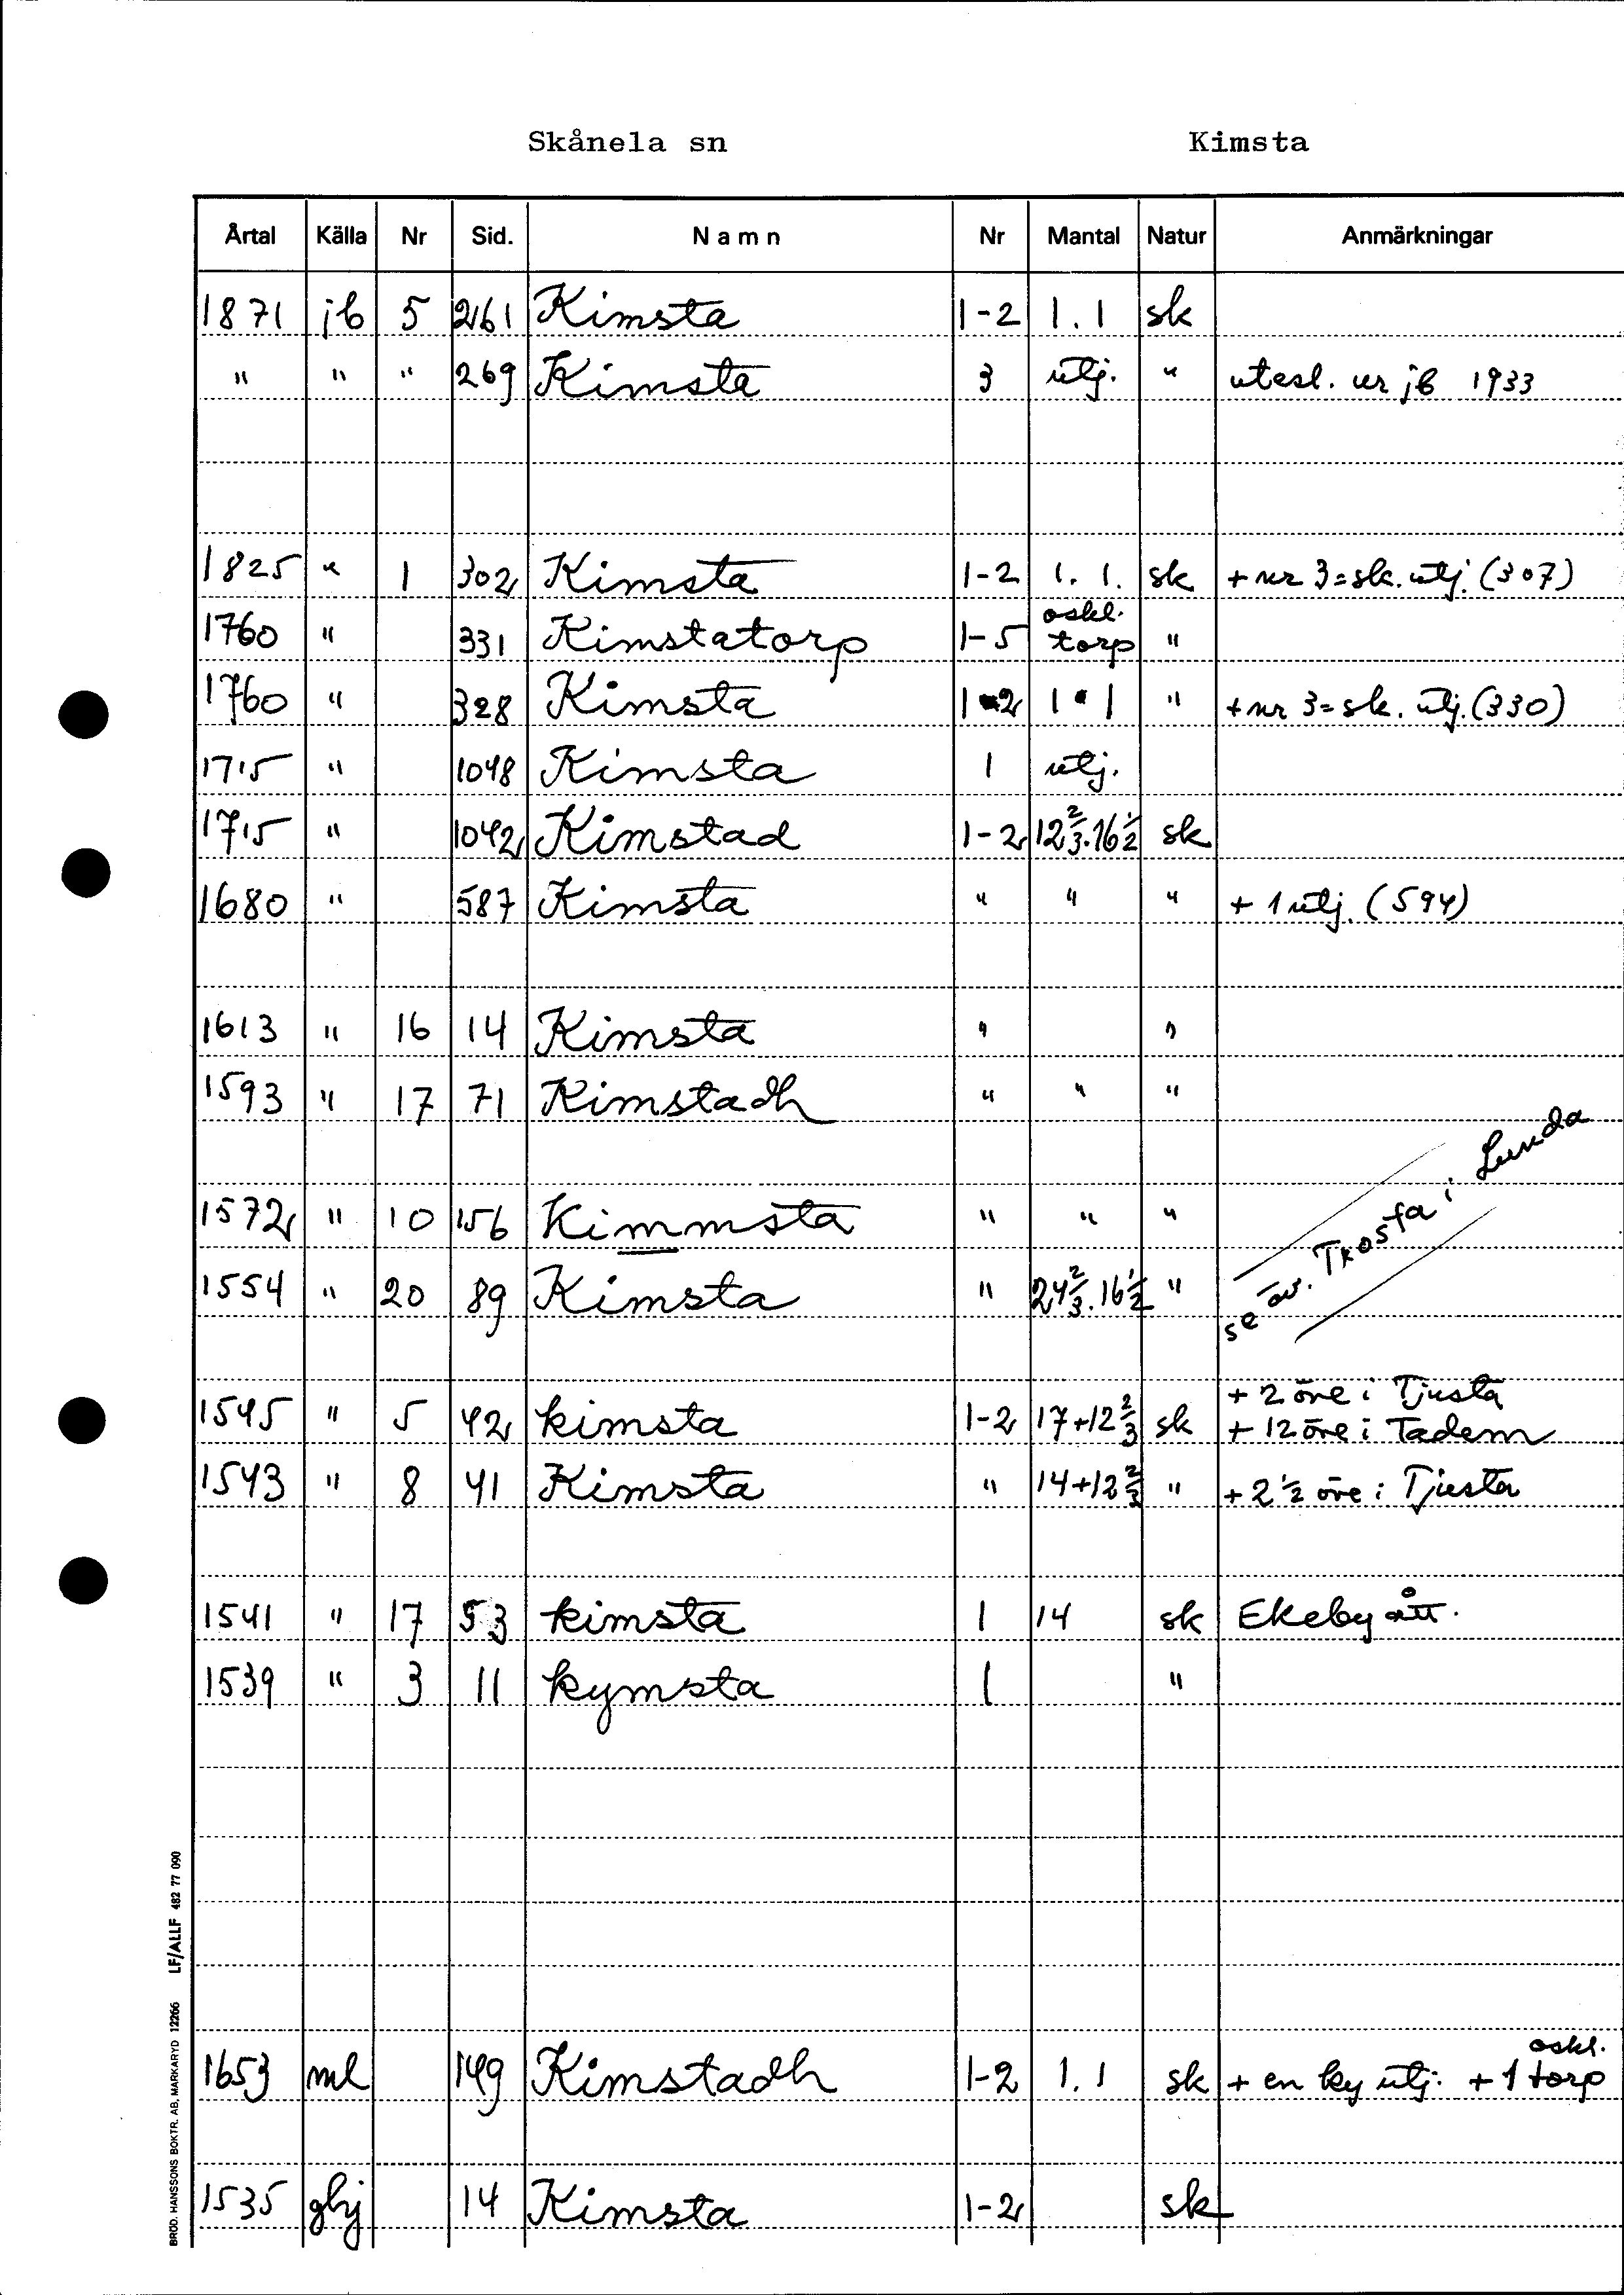 Skånela sn Kimsta
Årtal Källa Nr Sid. Namn Nr Mantal Natur Anmärkningar
1871 jb 5 261 Kimsta 1-2 1.1 sk
" " " 269 Kimsta 3 utj. " utesl. ur jb 1933
1825 " 1 302 Kimsta 1-2 1.1. sk + nr 3 = sk. utj. (307)
oskl.
1760 " 331 Kimstatorp 1-5 torp "
1760 " 328 Kimsta 1-2 1.1 " + nr 3 = sk. utj. (330)
1715 " 1048 Kimsta 1 utj.
1715 " 1042 Kimstad 1-2 12 2/3. 16 1/2 sk
1680 " 587 Kimsta " " " + 1 utj. (594)
1613 " 16 14 Kimsta " "
1593 " 17 71 Kimstadh " " "
1572 " 10 156 Kimmsta " " "
se äv. Trosta i Lunda
1554 " 20 89 Kimsta " 24 2/3. 16 1/2 "
+ 2 öre i Tjusta
1545 " 5 42 kimsta 1-2 17+12 2/3 sk + 12 öre i Tadem
1543 " 8 41 Kimsta " 14+12 2/3 " + 2 1/2 öre i Tjusta
1541 " 17 53 kimsta 1 14 sk Ekeby ått.
1539 " 3 11 kymsta 1 "
oskl.
1653 ml 149 Kimstadh 1-2 1.1 sk + en ky utj. + 1 torp
1535 ghj 14 Kimsta 1-2 sk
BRÖD. HANSSONS BOKTR. AB, MARKARYD 12266 LF/ALLF 482 77 090